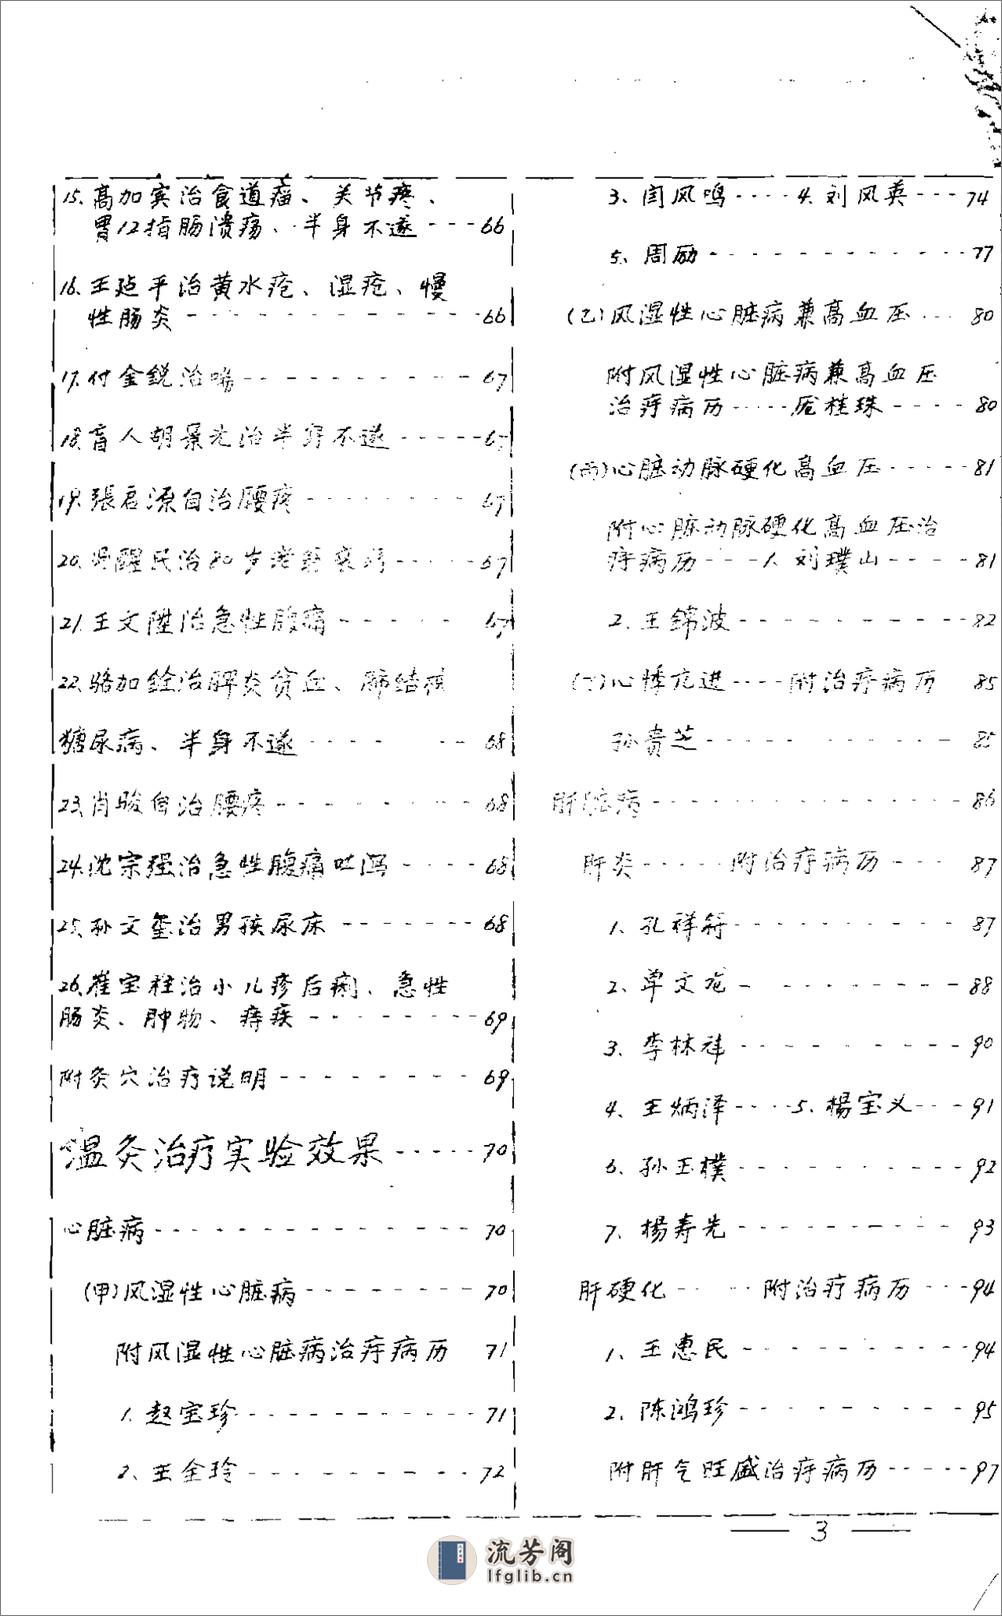 15.高加宾治食道瘤、关节疼、
胃12指肠溃疡、半身不遂-----66
16.王延平治黄水疮、湿疮、慢
性肠炎-----66
17.付金銳治喘-----67
18.盲人胡景先治半身不遂-----67
19.張君源自治腰疼-----67
20.醒民治80岁老-----67
21.王文陞治急性腹痛-----67
22.骆加銓治脾炎贫血、肺结核
糖尿病、半身不遂-----68
23.肖骏自治腰疼-----68
24.沈宗强治急性腹痛吐泻-----68
25.孙文玺治男孩尿床-----68
26.崔宝柱治小儿疹后痢、急性
肠炎、肿物、痔疾-----69
附灸穴治疗说明-----69
温灸治疗实验效果-----70
心脏病-----70
(甲)风湿性心脏病-----70
附风湿性心脏病治疗病历 71
1.赵宝珍-----71
2.王全玲-----72
3.闫风鸣----4.刘风英---74
5.周励-----77
(乙)风湿性心脏病兼高血压...80
附风湿性心脏病兼高血压
治疗病历-----庞桂珠----80
(丙)心脏动脉硬化高血压-----81
附心脏动脉硬化高血压治
疗病历----1.刘璞山----81
2.王錦波-----82
(丁)心悸亢进----附治疗病历 85
孙贵芝-----85
肝脏病-----86
肝炎-----附治疗病历---87
1.孔祥符-----87
2.单文龙-----88
3.李林祥-----90
4.王炳泽----5.楊宝义---91
6.孙玉樸-----92
7.楊寿先-----93
肝硬化----附治疗病历---94
1.王惠民-----94
2.陈鸿珍-----95
附肝气旺盛治疗病历-----97
3
流芳阁
lfglib.cn